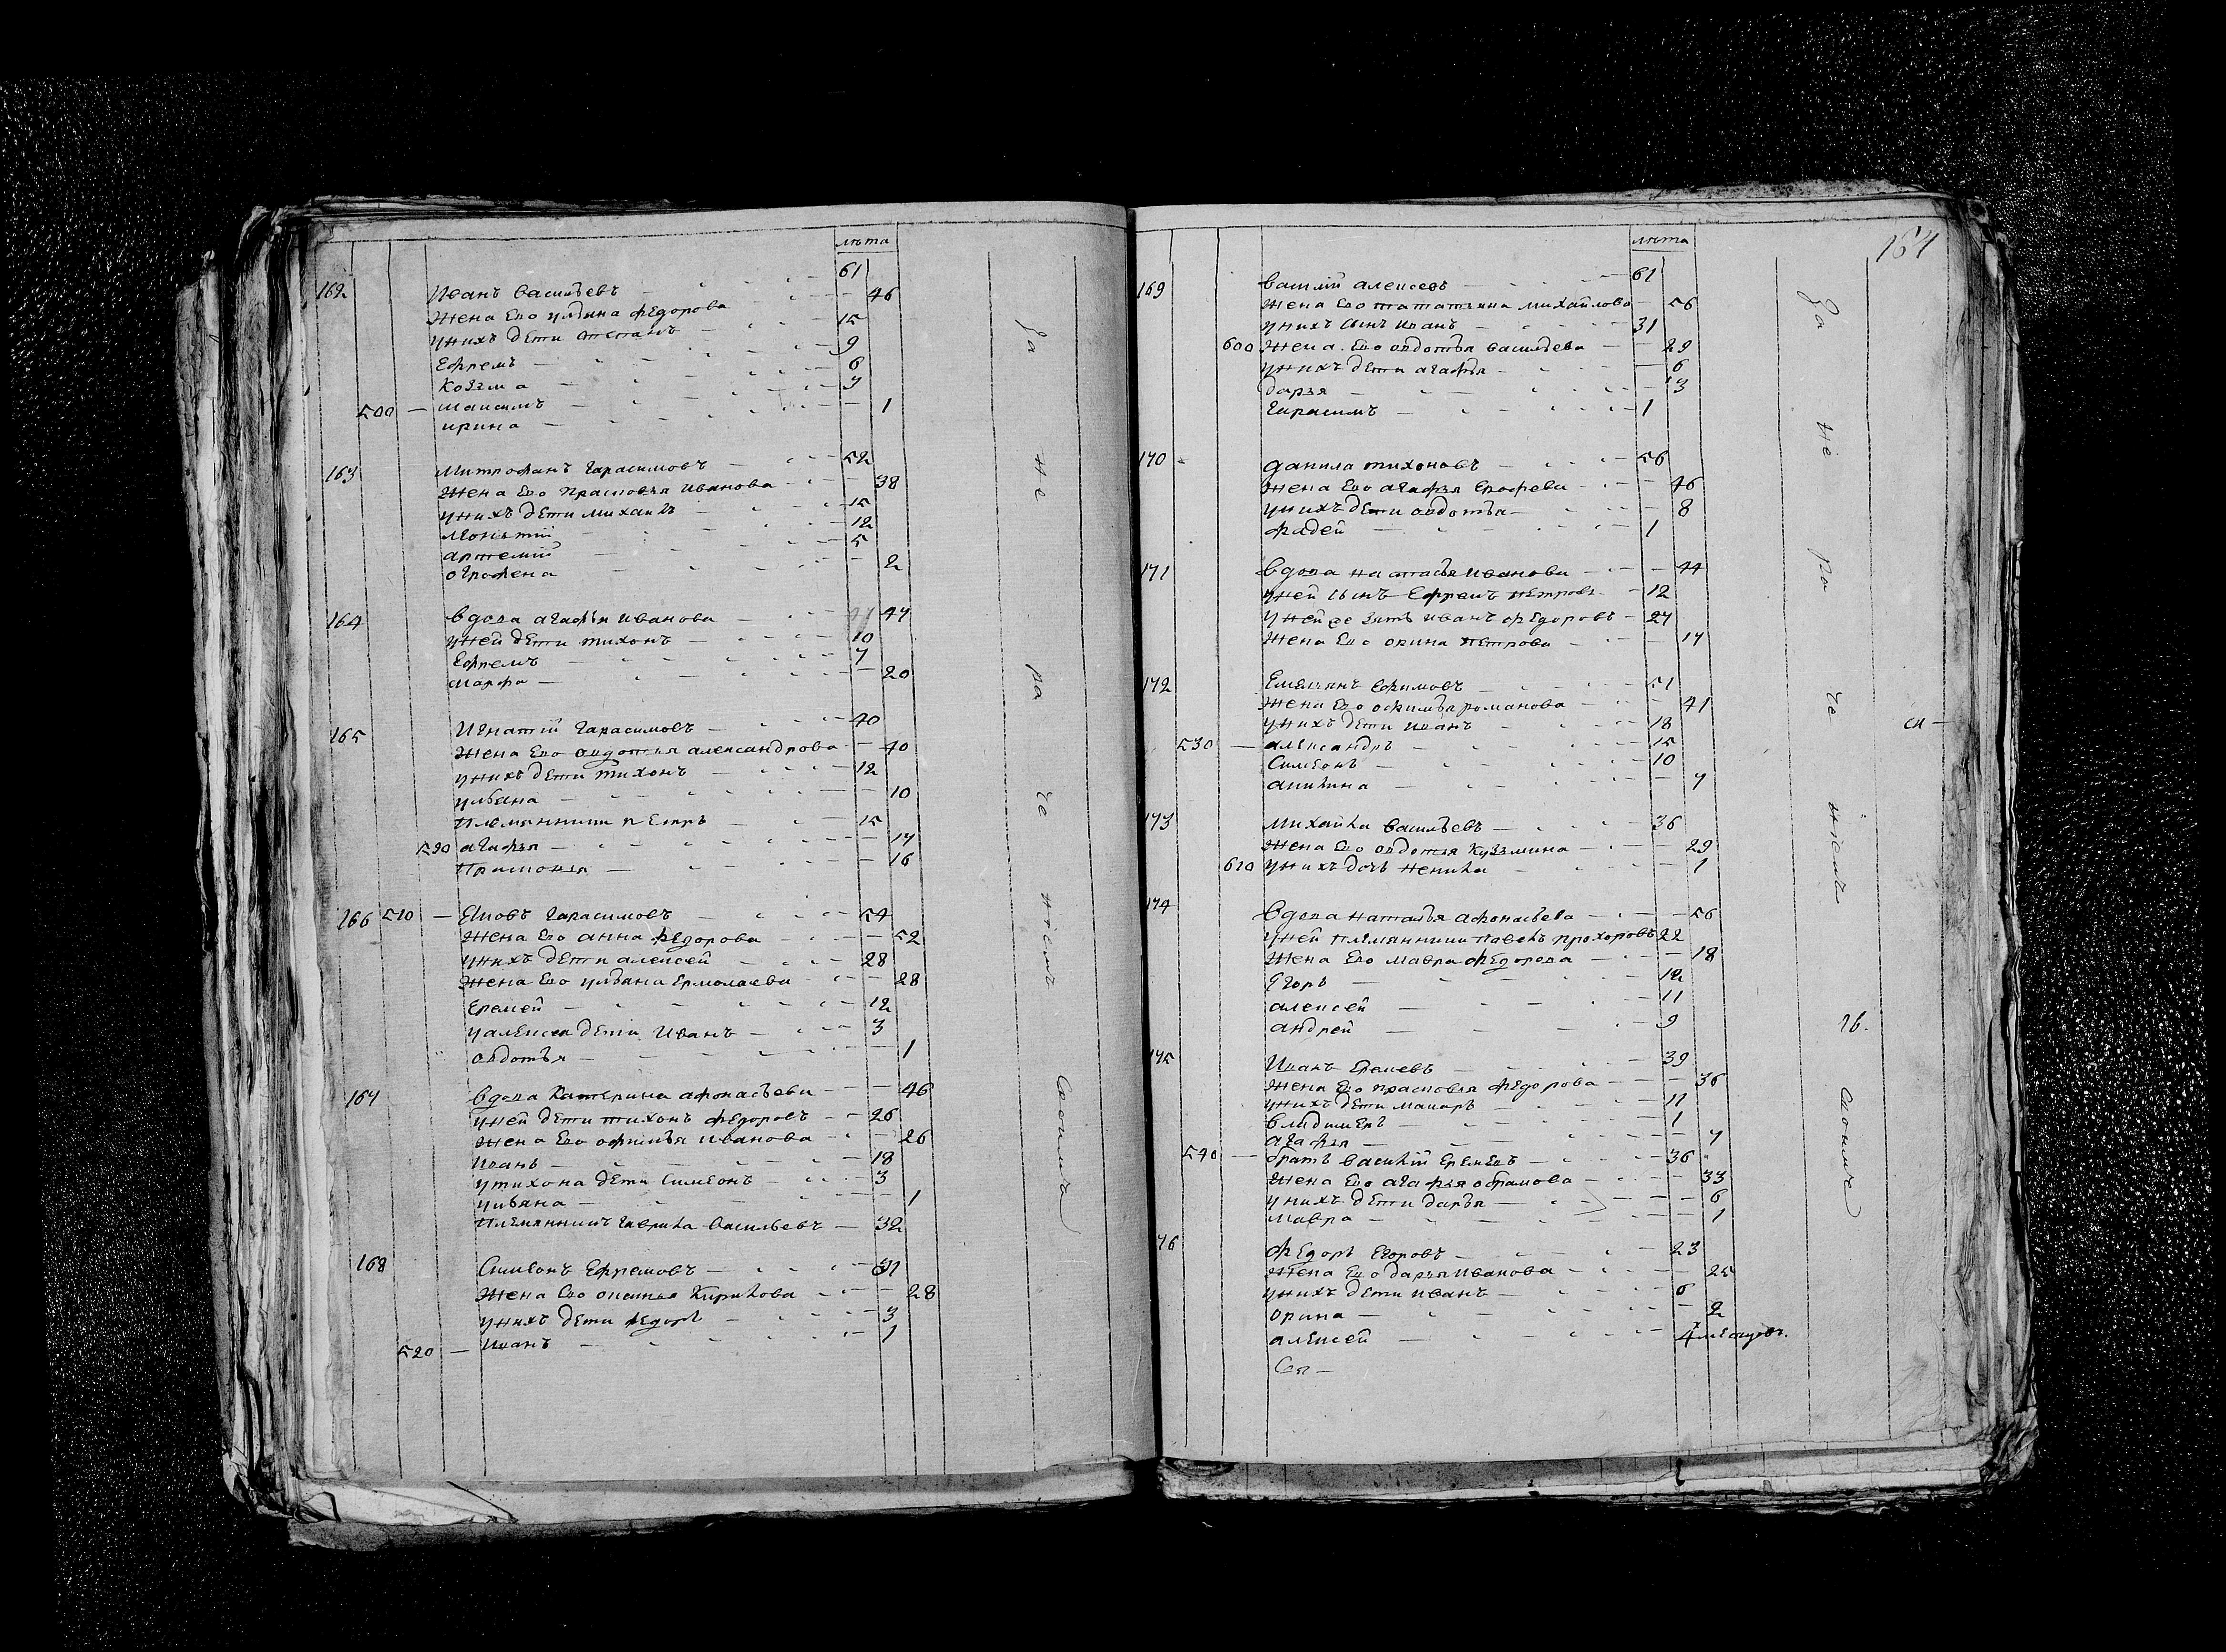 лѣта
162 Иванъ Васильевъ 61
Жена Ево улияна Федорова 46
унихъ дети степанъ 15
Ефремъ 9
Козьма 6
500 — Максимъ 3
ирина 1
163 Митрофанъ Гарасимовъ 52
Жена Ево Прасковья Иванова 38
унихъ дети михаилъ 15
12
артемий 5
ографена 2
164 вдова агафья Иванова 47
уней дети тихонъ 10
Ефремъ 7
марфа 20
165 Игнатий Гарасимовъ 40
Жена Ево овдотья александрова 40
унихъ дети тихонъ 12
ульяна 10
племянники петръ 15
590 агафья 17
Прасковья 16
166 510 — Гарасимовъ 54
Жена Ево анна федорова 52
унихъ дети алексей 28
Жена Ево ульяна Ермолаева 28
Еремей 12
уалексея дети Иванъ 3
овдотья 1
167 вдова Катерина афонасьева 46
уней дети тихонъ федоровъ 26
Жена Ево офимья иванова 26
Иванъ 18
утихона дети Симеонъ 3
ульяна 1
племянникъ гаврила васильевъ 32
168 Симеонъ Ефремовъ 31
Жена Ево Кирилова 28
унихъ дети федоръ 3
520 — Иванъ 1
За не ра че ниемъ своимъ
164
лѣта
169 василий алексеевъ 61
Жена Ево тататьяна михайлова 56
унихъ сынъ иванъ 31
600 Жена Ево овдотья васильева 29
унихъ дети агафья 6
дарья 3
Гарасимъ 1
170 данила тихоновъ 56
Жена Ево агафья Ерофеева 46
унихъ дети овдотья 8
фадей 1
171 вдова настасья иванова 44
уней сынъ Ефремъ петровъ 12
уней ее зять иванъ федоровъ 27
Жена Ево орина петрова 17
172 Емельянъ Ефимовъ 51
Жена Ево офимья романова 41
унихъ дети иванъ 18
530 — александръ 15
Симеонъ 10
акилина 7
173 Михайла васильевъ 36
Жена Ево овдотья Кузьмина 29
610 унихъ дочь ненила 1
174 вдова наталья афонасьева 56
уней племянники павелъ прохоровъ 22
Жена Ево мавра федорова 18
Егоръ 12
алексей 11
андрей 9
175 Иванъ Еремеевъ 39
Жена Ево прасковья федорова 36
унихъ дети макаръ 11
владимеръ 1
агафья 7
540 — братъ василий Еремеевъ 36
Жена Ево агафья обрамова 33
унихъ дети дарья 6
мавра 1
176 федоръ Егоровъ 23
Жена Ево дарья иванова 25
унихъ дети иванъ 6
орина 2
алексей 4 месецовъ.
Се —
За не ра че ниемъ